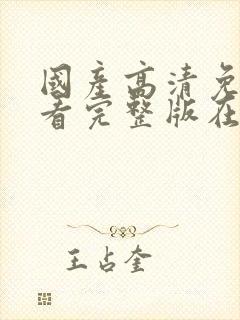 國產高清免
看完整版在
王占奎